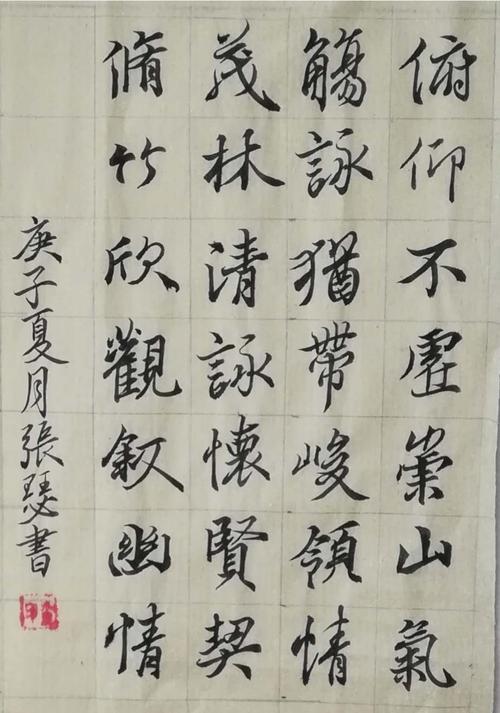 俯仰不虛崇山氣
觴詠猶帶峻領情
茂林清詠懷賢契
脩竹欣觀敘幽情
庚子夏月張瑟書